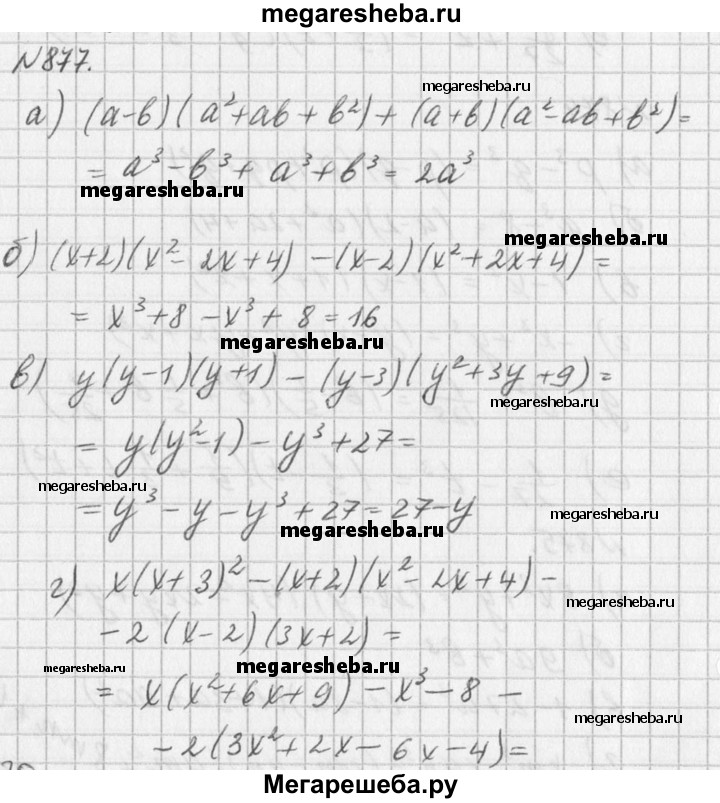 megaresheba.ru
№877.
megaresheba.ru
а) (a-b)(a²+ab+b²)+(a+b)(a²-ab+b²)=
= a³-b³+a³+b³=2a³
megaresheba.ru
megaresheba.ru
б) (x+2)(x²-2x+4)-(x-2)(x²+2x+4)=
= x³+8-x³+8=16
megaresheba.ru
в) y(y-1)(y+1)-(y-3)(y²+3y+9)=
megaresheba.ru
= y(y²-1)-y³+27=
megaresheba.ru
=y³-y-y³+27=27-y
megaresheba.ru
megaresheba.ru
г) x(x+3)²-(x+2)(x²-2x+4)-
megaresheba.ru
-2(x-2)(3x+2)=
megaresheba.ru
megaresheba.ru
= x(x²+6x+9)-x³-8-
megaresheba.ru
-2(3x²+2x-6x-4)=
Мегарешеба.ру